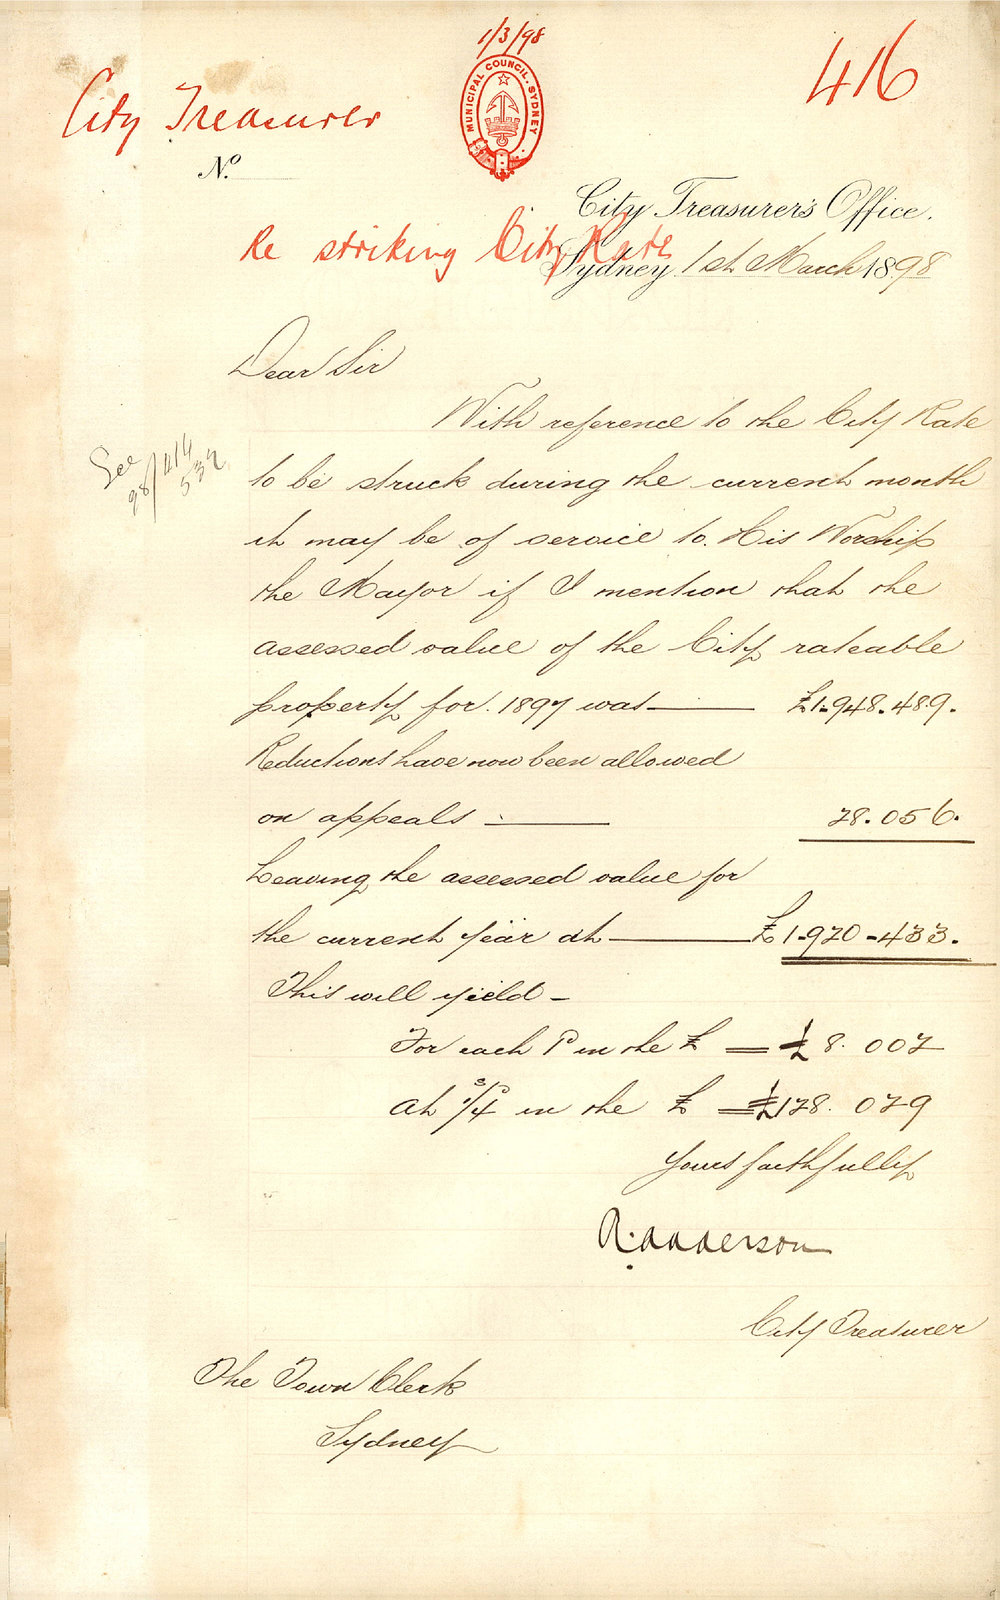 1/3/98
416
MUNICIPAL COUNCIL. SYDNEY
City Treasurer
No.
City Treasurer's Office.
Re striking City Rate
Sydney 1st March 1898
Dear Sir
With reference to the City Rate
See 98/414
532
to be struck during the current month
it may be of service to His Worship
the Mayor if I mention that the
assessed value of the City rateable
property for 1897 was — £1.948.489.
Reductions have now been allowed
on appeals — 28.056.
Leaving the assessed value for
the current year at — £1.920-433.
This will yield -
For each 1d in the £ = £8.002
At s1/d4 in the £ = £128.029
Yours faithfully
R. Anderson
City Treasurer
The Town Clerk
Sydney